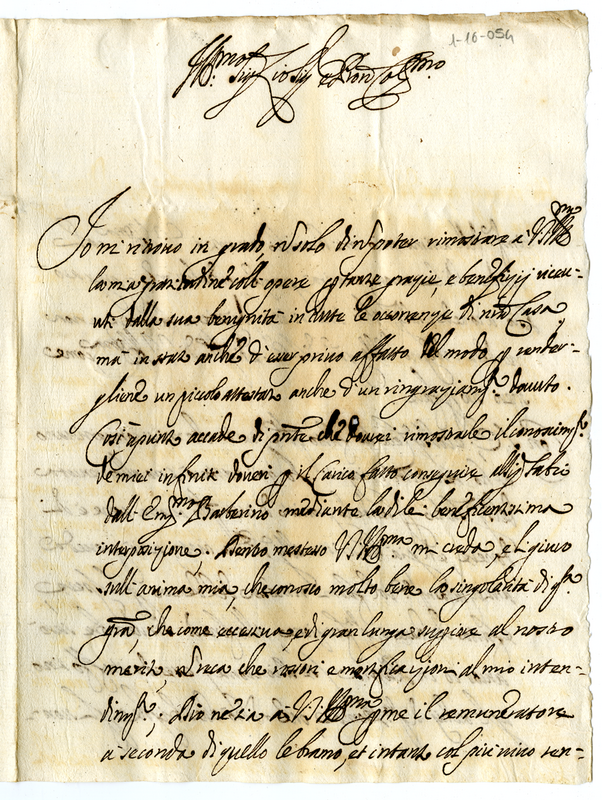 1-16-054
Ill.mo Sig.r Zio Sig.r e Pron Col.mo
Io mi ritrovo in grado, nõ solo di nõ poter rimostrare a V.S. Ill.ma
la mia gratitudine coll' opere p̱ tante grazie, e benefizij ricevu-
ti dalla sua benignità in tutte le occorrenze di nr̃a Casa,
ma in stato anche d'esser privo affatto del modo p̱ render-
gliene un piccolo attestato anche d'un ringraziam.to dovuto.
Così apunto accade di pñte che dovrei rimostrarle il conoscim.to
de miei infiniti doveri p̱ il carico fatto conseguire al Sig.
dall' Em.mo Barberino mediante la di lei beneficentissima
interposizione. Perciò V.S. Ill.ma mi creda, e li giuro
sull'anima mia, che conosco molto bene la singolarità di q.sta
grã, che come eccessiva, e di gran lunga sup̱iore al nostro
merito, nõ reca che rossori e mortificazioni al mio inten-
dim.to; Dio ne sia a V.S. Ill.ma p̱ me il remuneratore
a seconda di quello le bramo, et intanto col più vivo sen-